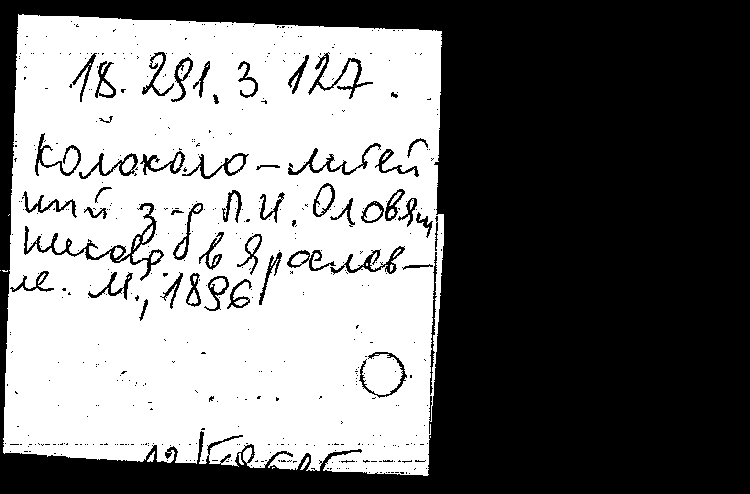 18. 291. 3. 127.
Колоколо-литей-
ный з-д П.И. Оловян
никова в Ярослав-
ле. М., 1896